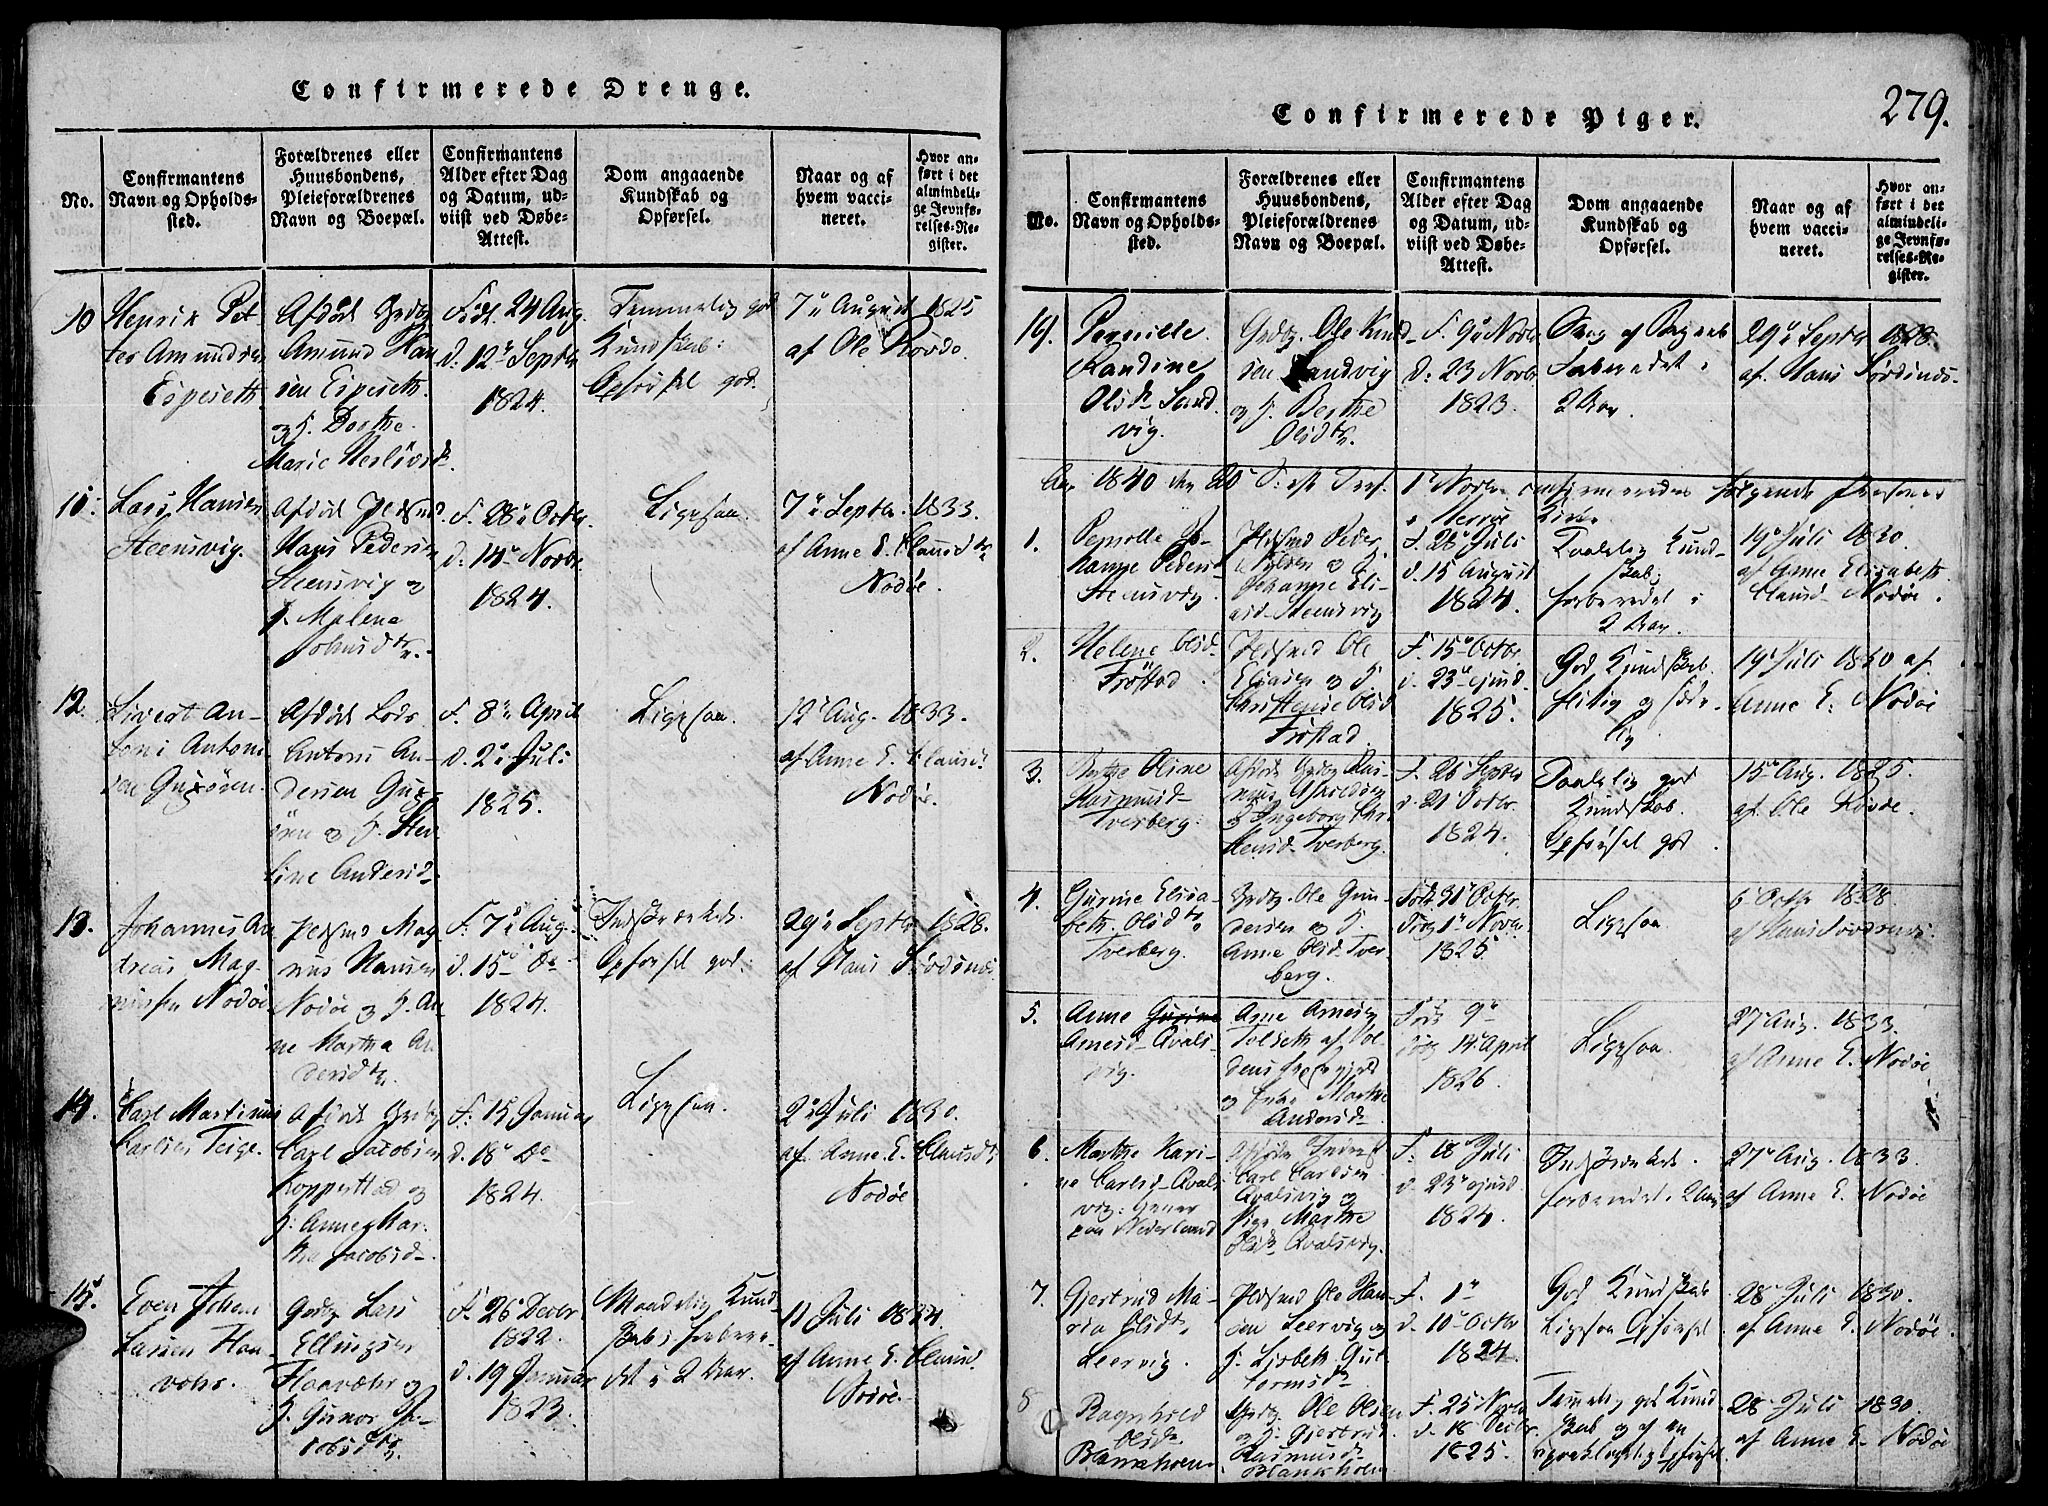 Confirmerede Drenge.
No.
Confirmantens
Navn og Opholds-
sted.
Forældrenes eller
Huusbondens,
Pleieforældrenes
Navn og Boepæl.
Confirmantens
Alder efter Dag
og Datum, ud-
viist ved Døbe-
Attest.
Dom angaaende
Kundskab og
Opførsel.
Naar og af
hvem vacci-
neret.
Hvor an-
ført i det
almindeli-
ge Jevnfø-
relses-Re-
gister.
10
Henrik Pet
ter Amundsen
Espeseth.
Afdöd Grdbr
Amund Han
sen Espeseth
og H. Dorthe
Marie Nerlövsd.
Föd. 24 Aug.
d. 12 Septr
1824.
Temmelig god
Kundskab:
Opförsel god.
7 August 1825
af Ole Rovde.
11.
Lars Hansen
Steensvig.
Afdöd Pldsmd
Hans Pedersen
Steensvig og
H. Malene
Johnsdtr.
F. 28 Octbr.
d. 14 Novbr.
1824.
Ligesaa.
7 Septr. 1833.
af Anne E. Clausdtr
Nodöe.
12.
Sivert An-
toni Anton
sen Gursöen.
Afdöd Lods
Antoni An-
dersen Gur-
söen og H. Ste-
line Andersd.
F. 8 April
d. 2 Juli
1825.
Ligesaa.
12 Aug. 1833.
af Anne E. Clausd.
Nodöe.
13.
Johannes An
dreas Mag-
nusen Nodöe
Pldsmd Mag
nus Hansen
Nodöe og H. An-
ne Martha An
dersdtr.
F. 7 Aug.
d. 15 Do
1824.
Indskrænket.
Opförsel god.
29 Septr 1828.
af Hans Sördsnæs
14.
Carl Martinus
Carlsen Teige.
Afdöd Grdbr
Carl Jacobsen
Koppestad og
H. Anne Mar-
tha Jacobsd.
F. 15 Januar
d. 18 Do
1824.
Ligesaa.
2 Juli 1830.
af Anne E. Clausdtr
Nodöe
15.
Even Johan
Larsen Haa-
vohr.
Grdbr Lars
Ellingsen
Haavohr og
H. Guner Ja-
cobsdtr
F. 26 Decbr
1822.
d. 19 Januar
1823.
Maadelig Kund
skab: forbere-
det i 2 Aar.
11 Juli 1834.
af Anne E. Clausd.
Nodöe.
279.
Confirmerede Piger.
No.
Confirmantens
Navn og Opholds-
sted.
Forældrenes eller
Huusbondens,
Pleieforældrenes
Navn og Boepæl.
Confirmantens
Alder efter Dag
og Datum, ud-
viist ved Døbe-
Attest.
Dom angaaende
Kundskab og
Opførsel.
Naar og af
hvem vacci-
neret.
Hvor an-
ført i det
almindeli-
ge Jevnfø-
relses-Re-
gister.
19.
Pernille
Randine
Olsdr Sand
vig.
Grdbr. Ole Knud
sen Sandvig
og H. Berthe
Olsdtr.
F. 9 Novbr
d. 23 Novbr
1823.
Svag af Begreb
forberedet i
2 Aar.
29 Septr 1828.
af Hans Sördsnæs.
Aar 1840 den 20 S. eft. Tref. 1 Novbr. confirmeredes fölgende
Herröe Kirke
1.
Pernille Jo-
hanne Peders
Steensvig
Pldsmd Peder
Nilsen og H.
Johanne Eli-
asd. Steensvig
F. 28 Juli
d. 15 August
1824.
Taalelig Kund-
skab;
forberedet i
2 Aar.
19 Juli 1830.
af Anne Elisabeth
Clausd. Nodöe.
2.
Helene Olsd.
Fröstad
Pldsmd Ole
Eliasen og H.
Christense Olsd
Fröstad
F. 15 Octbr
d. 23 ejusd.
1825.
God Kundskab.
flitig og sæde-
lig
19 Juli 1830 af
Anne E. Nodöe
3.
Berthe Oline
Rasmusd.
Tverberg.
Afdöde Grdbr Ras-
mus
og Ingeborg Chri-
stensd. Tverberg.
F. 26 Septbr
d. 21 Octbr.
1824.
Taalelig god
Kundskab.
Opförsel god.
15 Aug. 1825.
af Ole Rovde.
4.
Gurine Elisa-
beth Olsdtr
Tverberg.
Grdbr. Ole Gun
dersen og H.
Anne Olsd. Tver-
berg.
Föd 31 Octbr.
Döbt 1 Novbr.
1825.
Ligesaa.
6 Octbr 1828.
af Hans Sördsnæs.
5.
Anne Gurine
Arnesd. Qvals-
vig.
Arne Arnesen
Tolseth af Vol-
dens Præstegjeld
og Enke Marthe
Andersd.
Föd 9
Döbt 14 April
1826.
Ligesaa.
27 Aug. 1833.
af Anne E. Nodöe
6.
Marthe Kari-
ne Carlsd. Qvals
vig: tjener
paa Nederland
Carl Carlsen
Qvalsvig og
Pige Marthe
Olsdr Qvalsvig.
F. 18 Juli
d. 23 ejusd.
1824.
Indskrænket.
forberedet 2 Aar
27 Aug. 1833
af Anne E. Nodöe
7.
Gjertrud Ma-
ria Olsdtr
Leervig.
Pldsmd Ole Han-
sen Leervig og
H. Lisbeth Gut
tormsdr
F. 1
d. 10 Octbr
1824.
God Kundskab
Ligesaa Opförsel
28 Juli 1830.
af Anne E. Nodöe.
8
Ragnhild
Olsdr
Blankholm
Grdbr. Ole Olsen
og H. Gjertrud
Rasmusd.
Blankholm
F. 25 Novbr
d. 18 Decbr.
1825.
Temmelig god Kund
skab og af en
upaaklagelig Opförsel
28 Juli 1830.
af Anne E. Nodöe